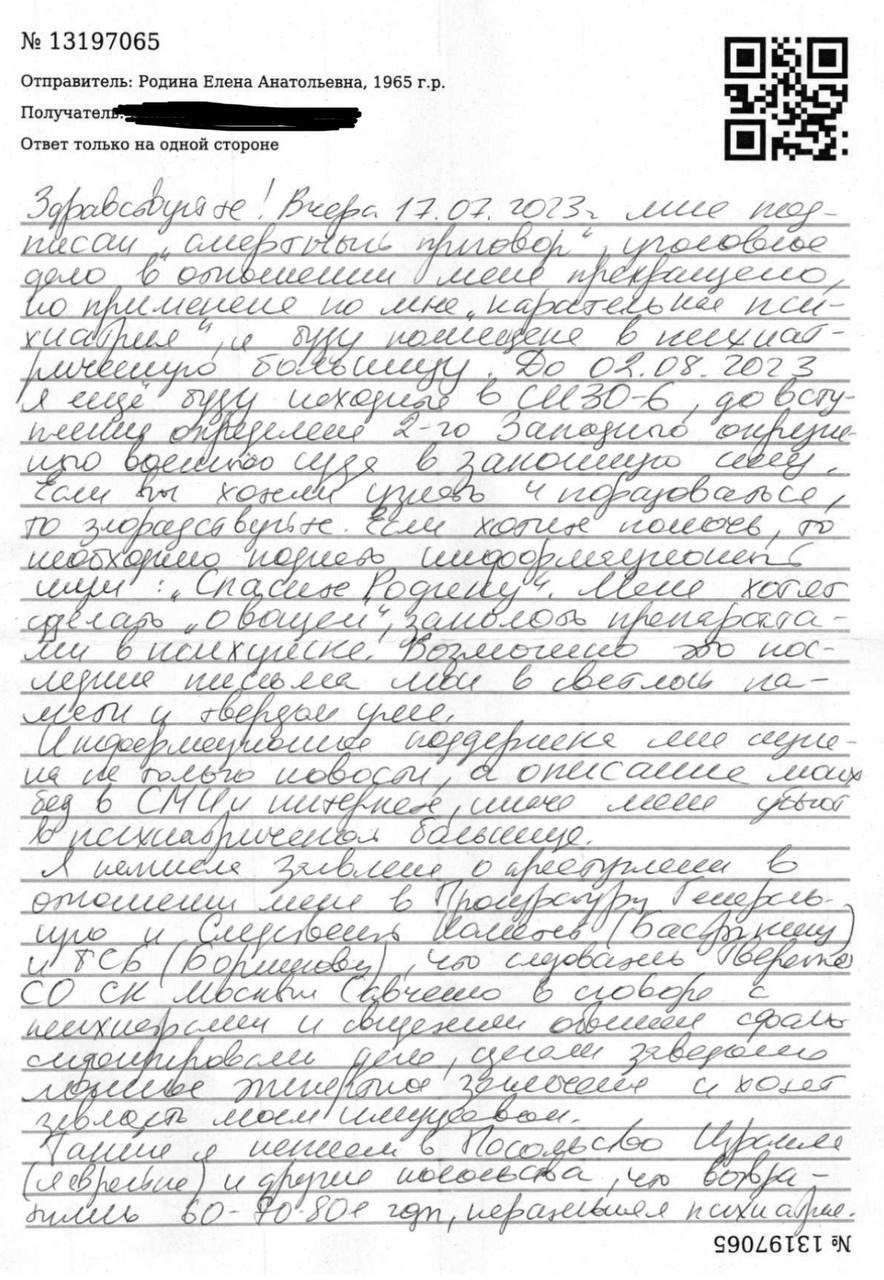 № 13197065
Отправитель: Родина Елена Анатольевна, 1965 г.р.
Получатель:
Ответ только на одной стороне
Здравствуйте! Вчера 17.07.2023г мне под-
писан „смертный приговор“, уголовное
дело в отношении меня прекращено,
но применена ко мне „карательная пси-
хиатрия“, и буду помещена в психиат-
рическую больницу. До 02.08.2023
я ещё буду находиться в СИЗО-6, до всту-
пления определения 2-го Западного окружн-
ного военного суда в законную силу.
Если вы хотели узнать и порадоваться,
то злорадствуйте. Если хотите помочь, то
необходимо поднять информационный
шум: „Спасите Родину“. Меня хотят
сделать „овощем“, заколоть препарата-
ми в психушке. Возможно это пос-
ледние письма мои в светлой па-
мяти и твердом уме.
Информационная поддержка мне нуж-
на не только новости, а описание моих
бед в СМИ и интернете, иначе меня убьют
в психиатрической больнице.
Я написала заявление о преступлении в
отношении меня в Прокуратуру Генераль-
ную и Следственный комитет (Бастрыкину)
и ФСБ (Бортникову), что следователь
СО СК Москвы Савченко в сговоре с
психиатрами и сфаль-
сифицировали дело, сделали заведомо
ложное экспертное заключение и хотят
завладеть моим имуществом.
Также я написала в Посольство Израиля
(я еврейка) и другие посольства, что возвра-
тились 60-70-80е годы, карательная психиатрия.
№ 13197065